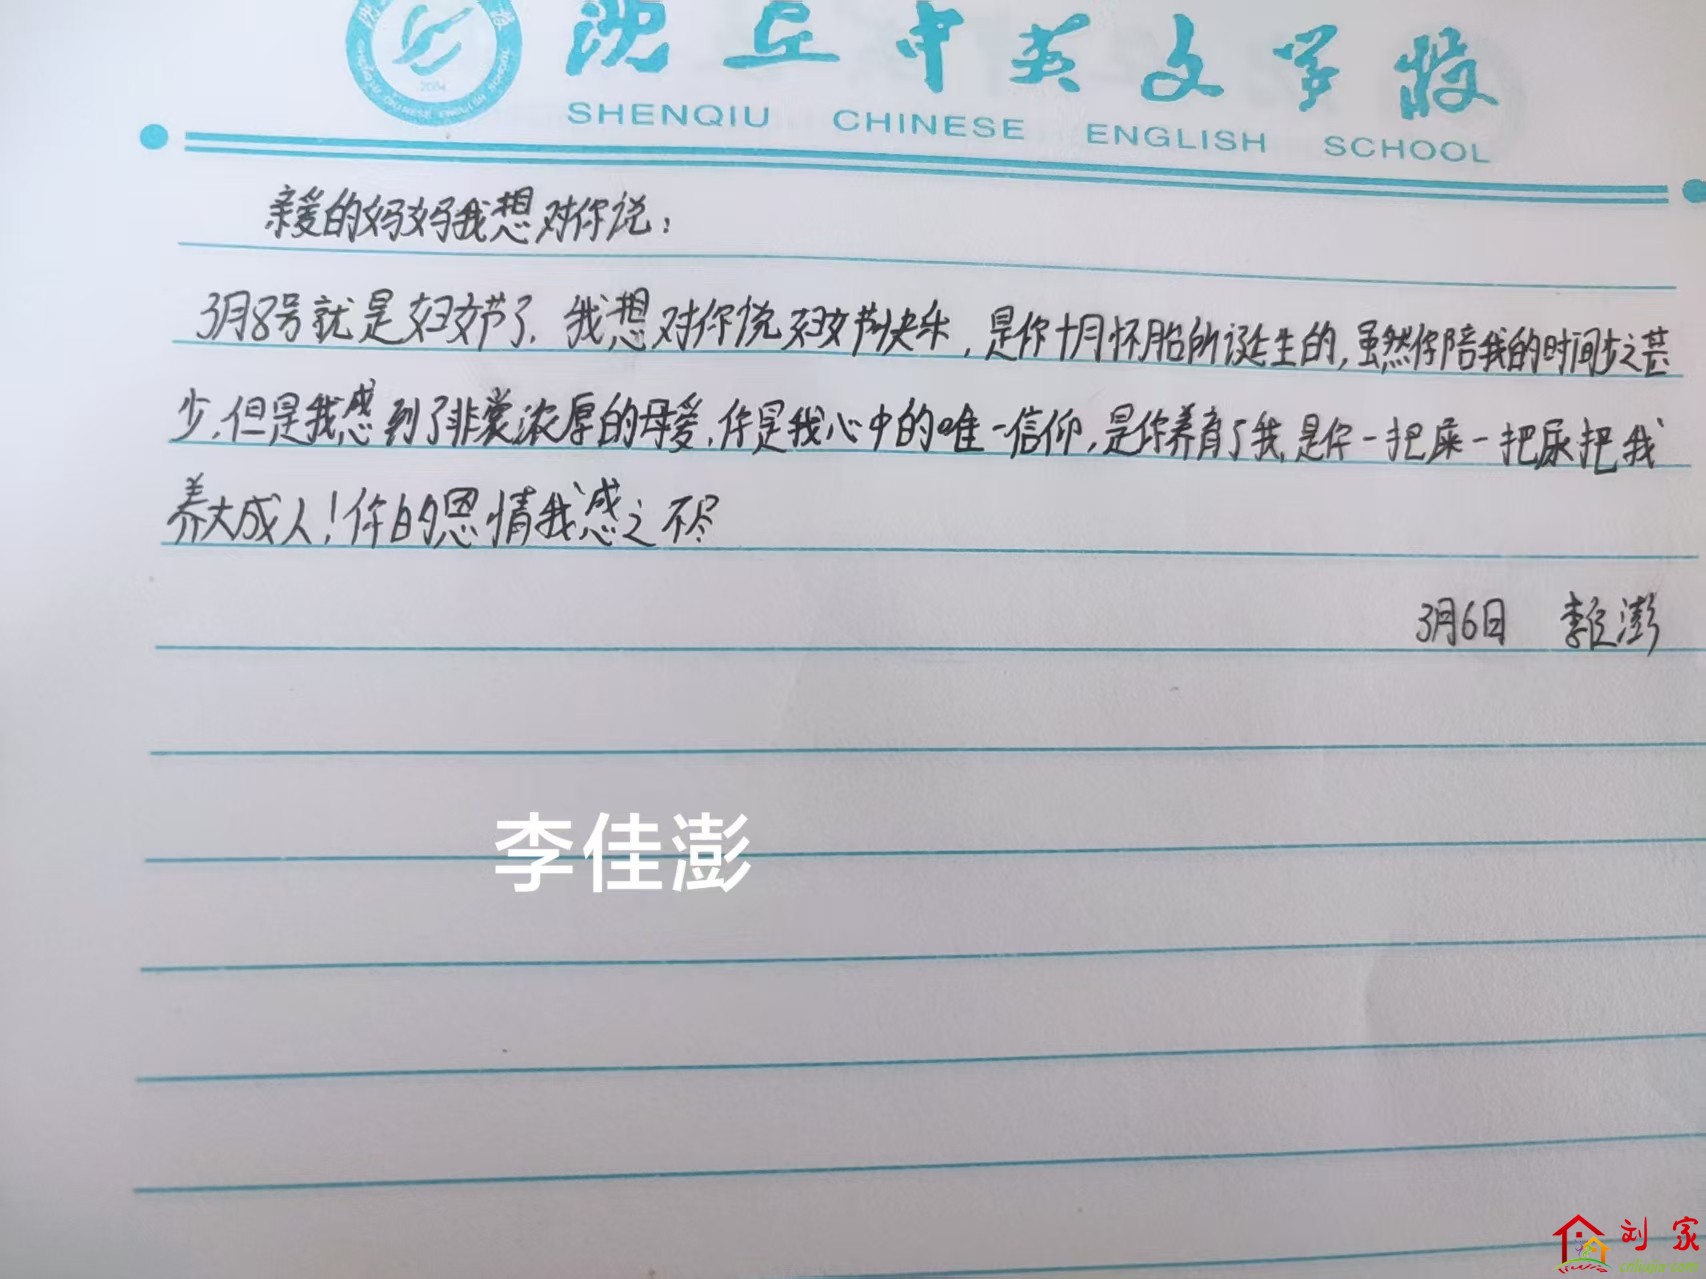 沈丘中英文学校
SHENQIU CHINESE ENGLISH SCHOOL
亲爱的妈妈我想对你说：
3月8号就是妇女节了，我想对你说妇女节快乐，是你十月怀胎所诞生的，虽然你陪我的时间少之甚
少，但是我感到了非常浓厚的母爱，你是我心中的唯一信仰，是你养育了我，是你一把屎一把尿把我
养大成人！你的恩情我感之不尽
3月6日 李佳澎
李佳澎
刘家